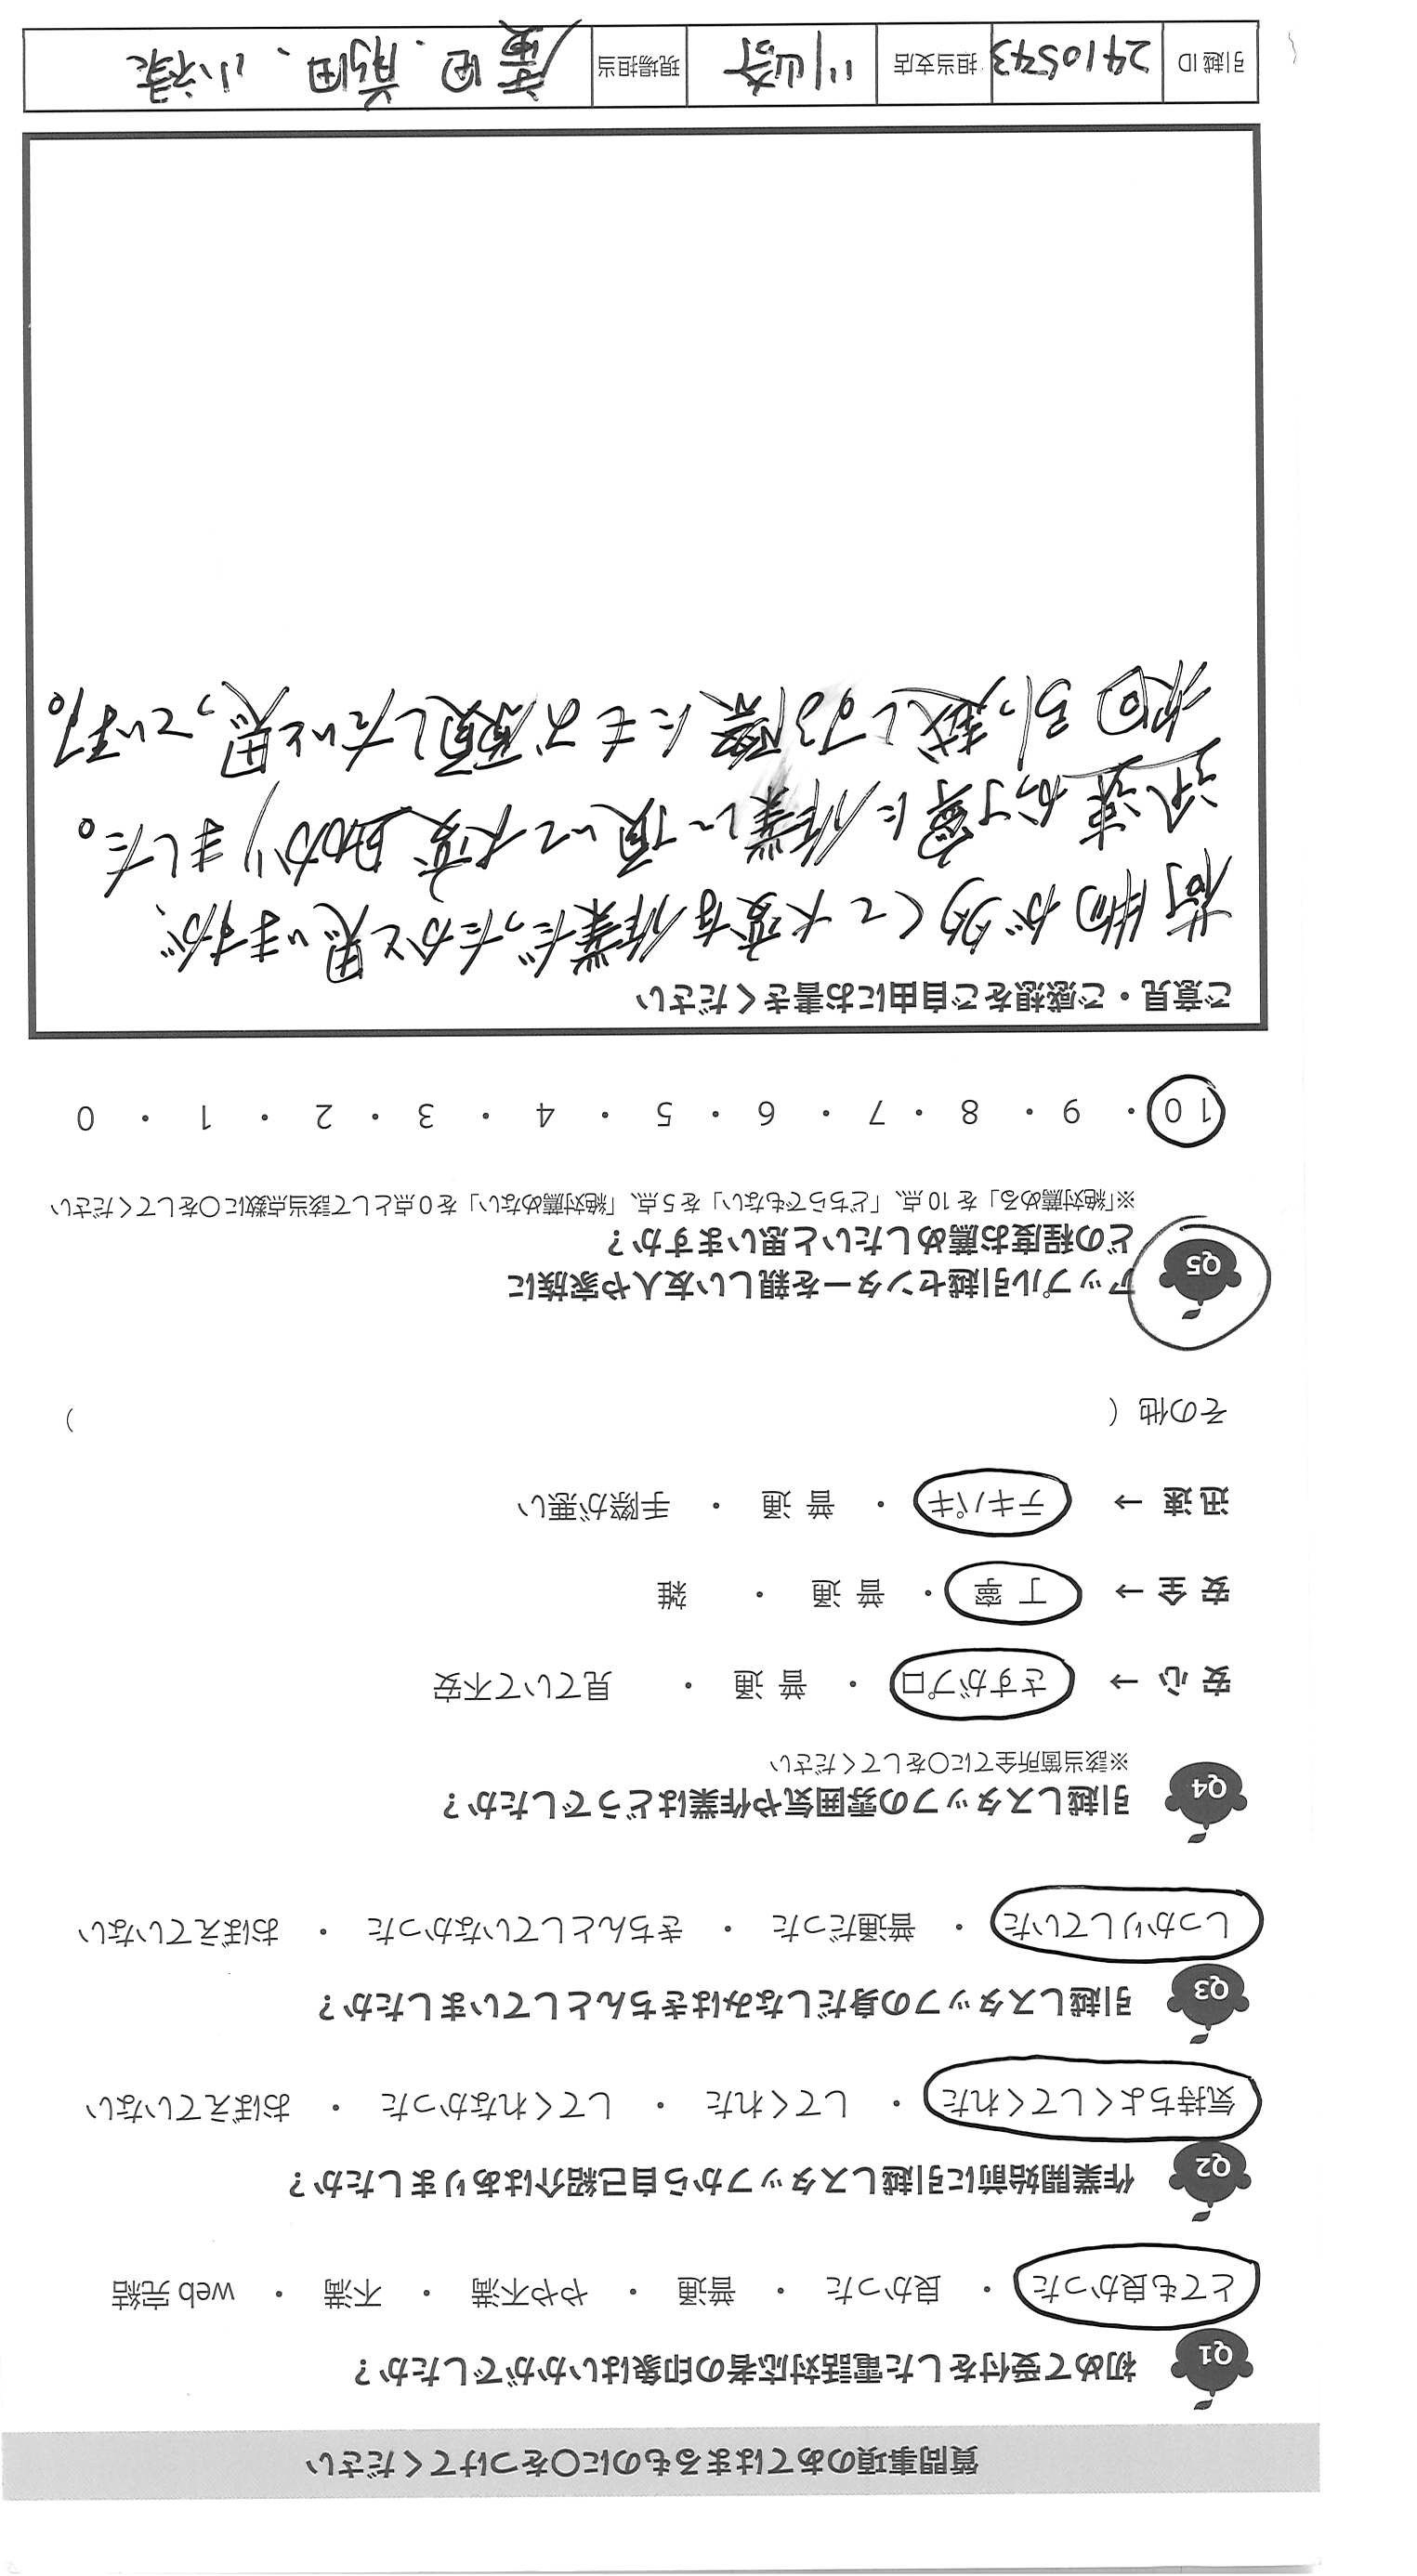 質問事項のあてはまるものに〇をつけてください
Q1 初めて受付をした電話対応者の印象はいかがでしたか？
とても良かった ・ 良かった ・ 普通 ・ やや不満 ・ 不満 ・ web 完結
Q2 作業開始前に引越しスタッフから自己紹介はありましたか？
気持ちよくしてくれた ・ してくれた ・ してくれなかった ・ おぼえていない
Q3 引越しスタッフの身だしなみはきちんとしていましたか？
しっかりしていた ・ 普通だった ・ きちんとしていなかった ・ おぼえていない
Q4 引越しスタッフの雰囲気や作業はどうでしたか？
※該当箇所全てに〇をしてください
安 心 → さすがプロ ・ 普 通 ・ 見ていて不安
安 全 → 丁 寧 ・ 普 通 ・ 雑
迅 速 → テキパキ ・ 普 通 ・ 手際が悪い
その他（ ）
Q5 アップル引越センターを親しい友人や家族に
どの程度お薦めしたいと思いますか？
※「絶対薦める」を 10 点、「どちらでもない」を 5 点、「絶対薦めない」を 0 点として該当点数に〇をしてください
10 ・ 9 ・ 8 ・ 7 ・ 6 ・ 5 ・ 4 ・ 3 ・ 2 ・ 1 ・ 0
ご意見・ご感想をご自由にお書きください
荷物が多くて大変な作業だったかと思いますが、
迅速かつ丁寧に作業して頂いて大変助かりました。
次回引っ越しする際にもお願いしたいと思っています。
引越 ID 2410543 担当支店 川崎 現場担当 廣田、前田、小禄